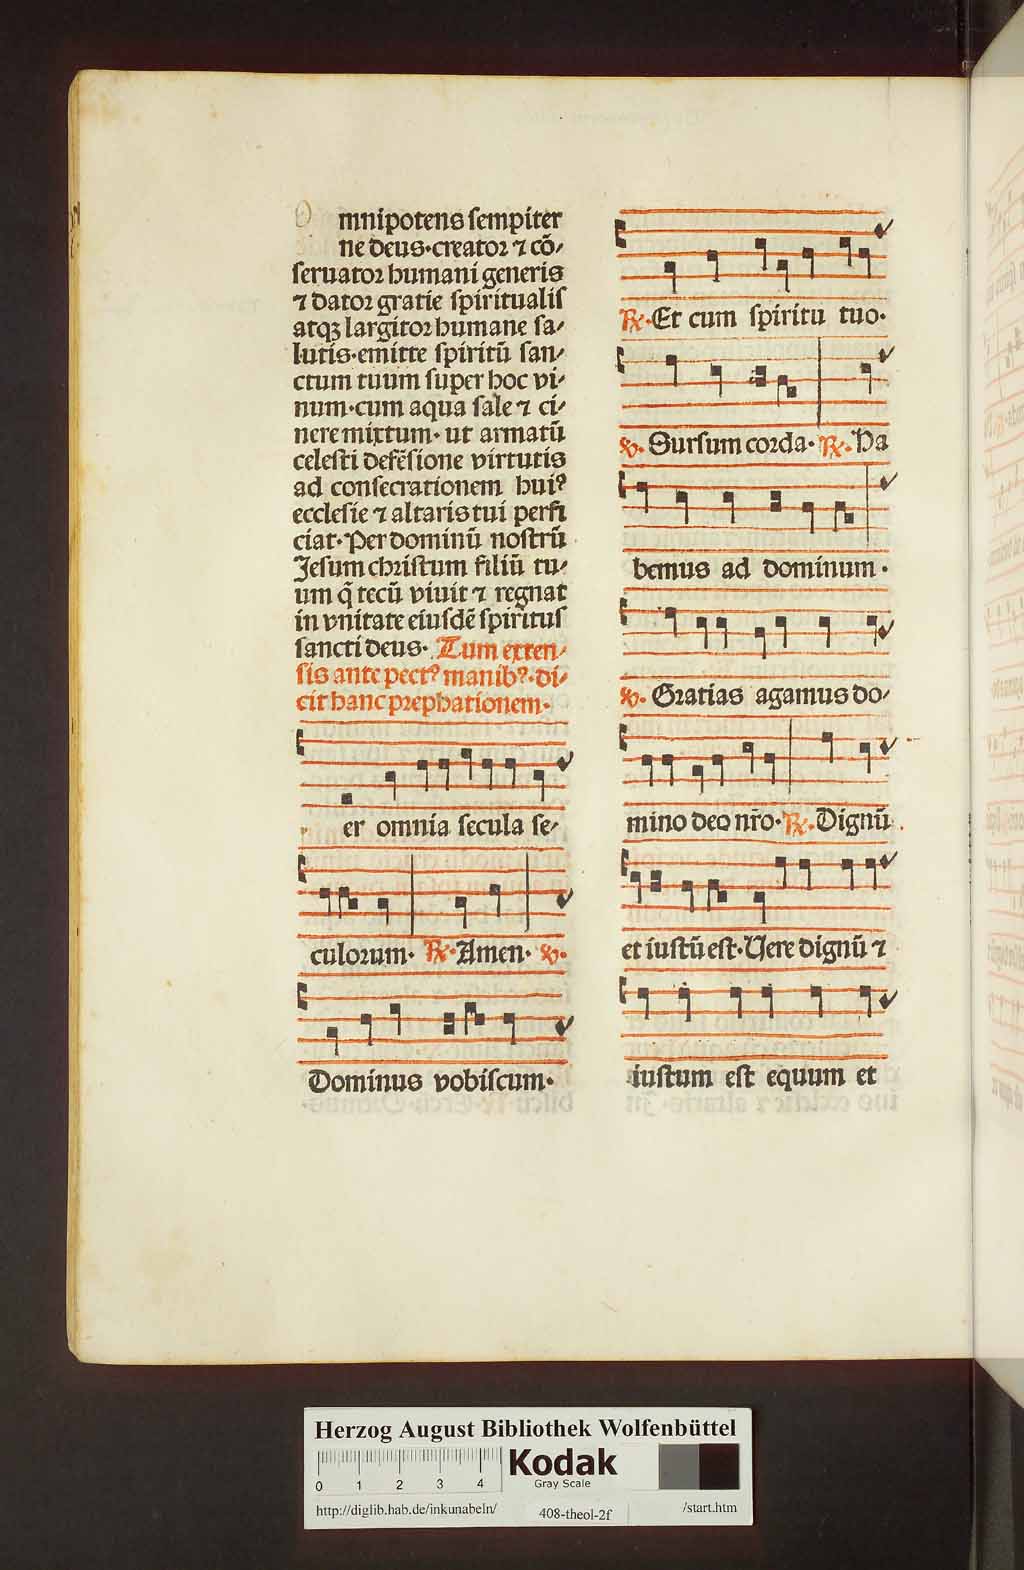 O mnipotens sempiter
ne deus·creator ⁊ cō/
seruator humani generis
⁊ dator gratie spiritualis
atqꝫ largitor humane sa/
lutis·emitte spiritū san/
ctum tuum super hoc vi/
num·cum aqua sale ⁊ ci/
nere mixtum· ut armatū
celesti defēsione virtutis
ad consecrationem huiꝰ
ecclesie ⁊ altaris tui perfi
ciat·Per dominū nostrū
Jesum christum filiū tu/
um q̄ tecū viuit ⁊ regnat
in vnitate eiusdē spiritus
sancti deus· Tum exten/
sis ante pectꝰ manibꝰ·di/
cit hanc prephationem·
er omnia secula se/
culorum· ℟·Amen· ℣·
Dominus vobiscum·
℟·Et cum spiritu tuo·
℣·Sursum corda·℟·Ha
bemus ad dominum·
℣·Gratias agamus do/
mino deo nr̄o·℟·Dignū
et iustū est·Vere dignū ⁊
iustum est equum et
Herzog August Bibliothek Wolfenbüttel
0 1 2 3 4
Kodak
Gray Scale
http://diglib.hab.de/inkunabeln/ 408-theol-2f /start.htm